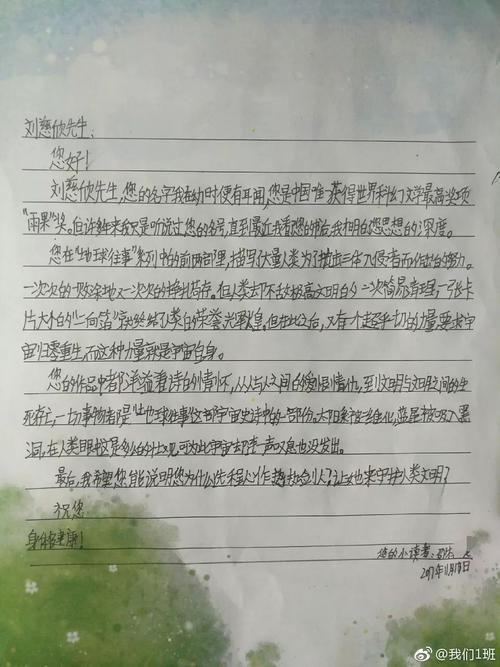 刘慈欣先生:
您好!
刘慈欣先生,您的名字我在幼时便有耳闻,您是中国唯一获得世界科幻文学最高奖项
"雨果"奖。但许多年来我只是听说过您的名号,直到最近我看您的作品我才明白您思想的深度。
您在"地球往事"系列中的前两部里,描写了大量人类为了抵抗三体入侵者而作出的努力。
一次次的一败涂地又一次次的挣扎苟存。但人类却不敌极高文明的一次简易清理,一张卡
片大小的"二向箔"就结束了人类的荣誉光辉煌。但在此之后,又有一个超乎一切的力量要求宇
宙归零重生,而这种力量就是宇宙自身。
您的作品中都洋溢着诗的情怀,从人与人之间的爱恨情仇,到文明与文明之间的生
死存亡,一切事物都是"地球往事"这部宇宙史诗中的一部份。太阳系被二维化,蓝星被吸入黑
洞,在人类眼中这是多么的壮观,可为此宇宙却连一声叹息也没发出。
最后,我希望您能说明您为什么先程心作为执剑人?让她来守护人类文明?
祝您
身体健康!
您的小读者:
2017年11月18日
@我们1班